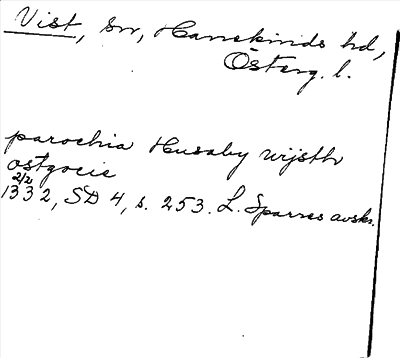 Vist, sn, Hanekinds hd,
Österg. l.
parochia Husaby wijsth
ostgocie
2/2
1332, SD 4, s. 253. L. Sparres avskr.